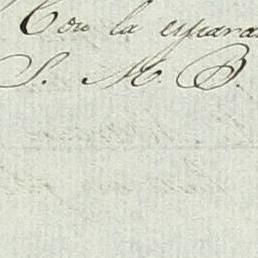 Con la espera
S. M. B.